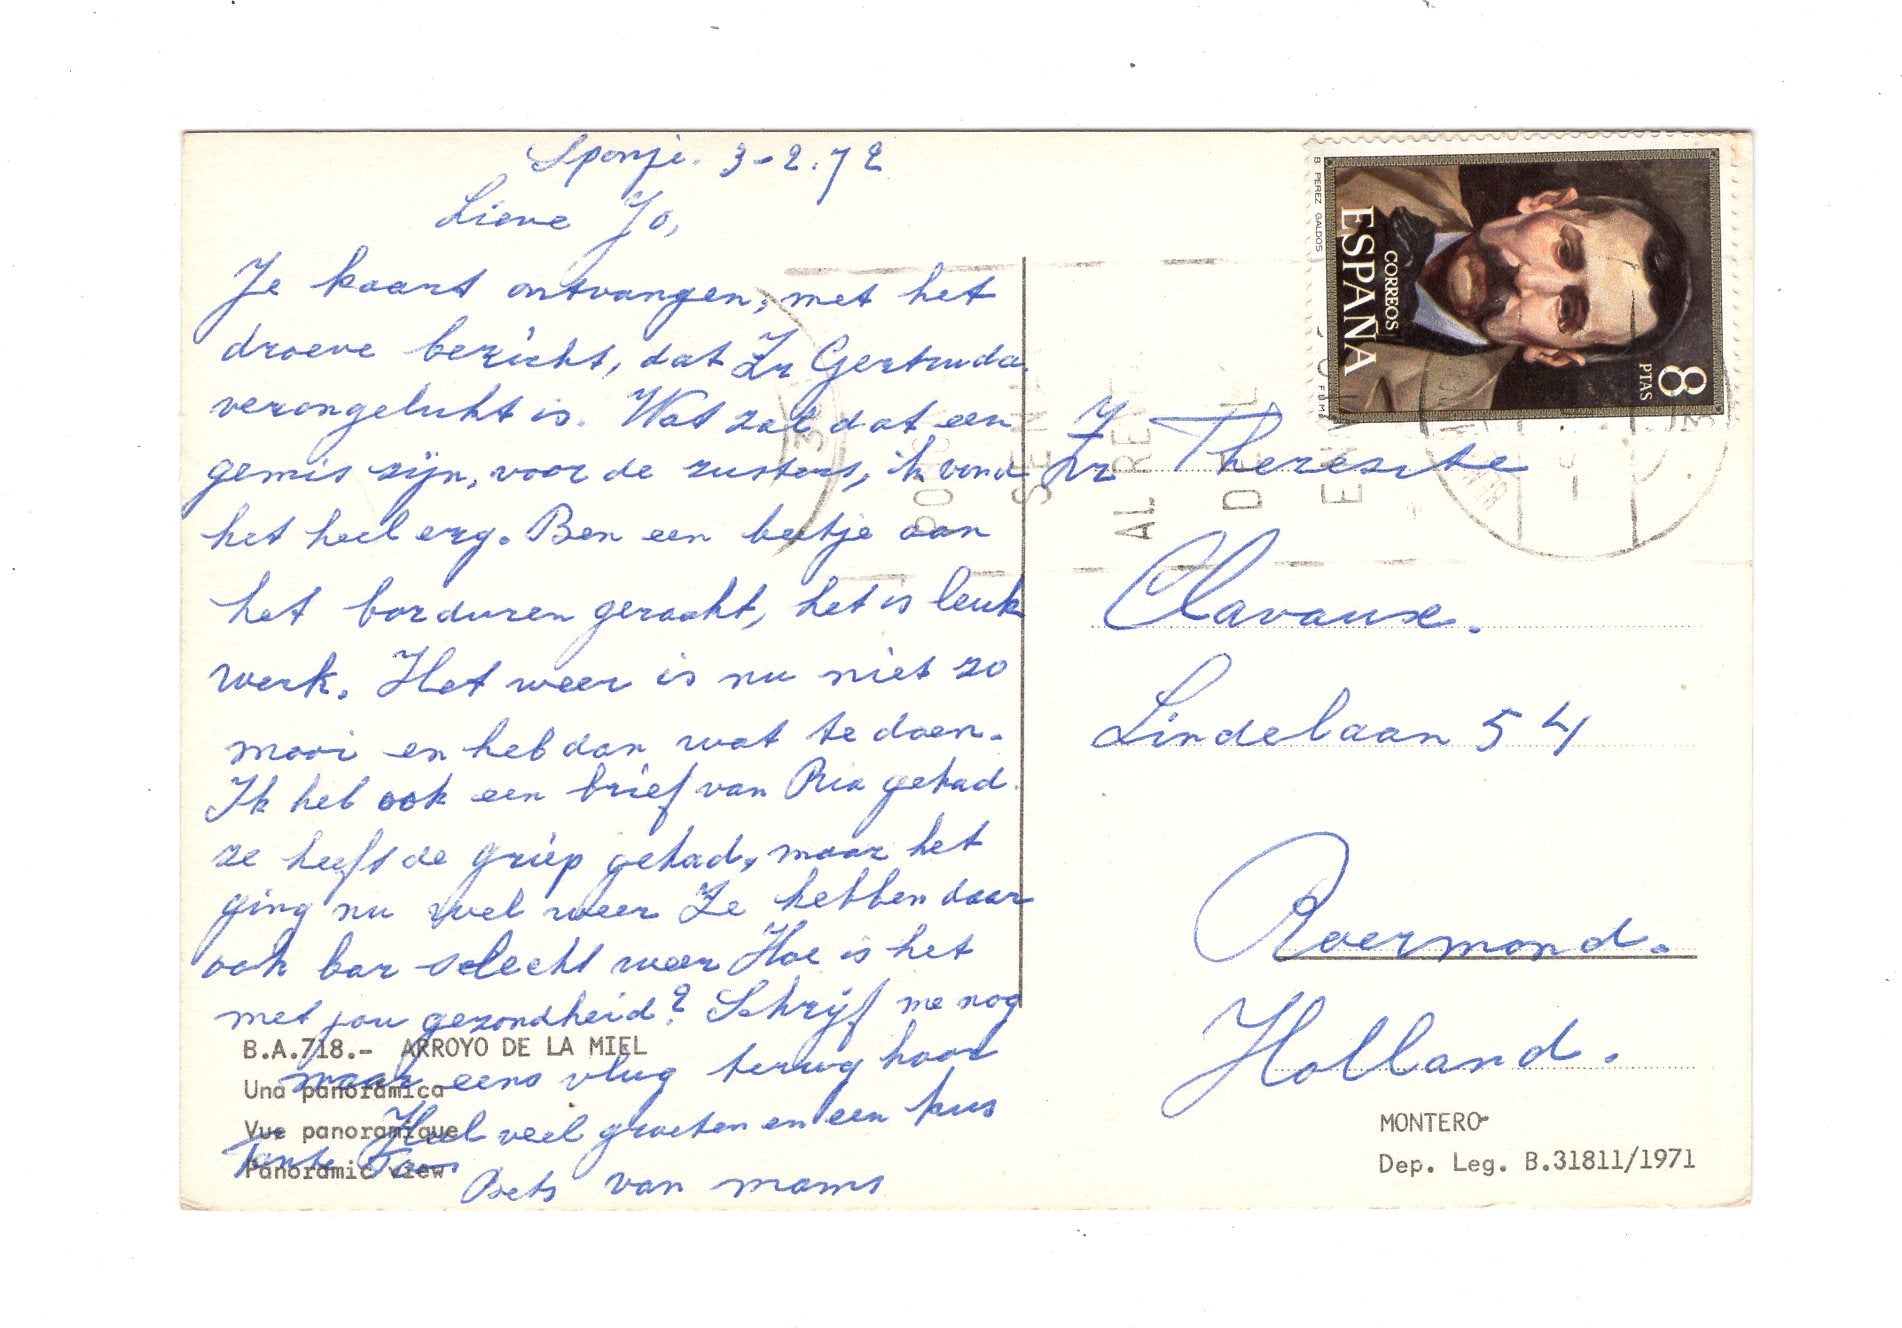 Sponje. 3-2.72
Lieve Jo,
Je kaart ontvangen, met het
droeve bericht, dat Zr Gertruda
verongelukt is. Wat zal dat een
gemis zijn, voor de zusters, ik vond
het heel erg. Ben een beetje aan
het borduren geraakt, het is leuk
werk. Het weer is nu niet zo
mooi en heb dan wat te doen.
Ik heb ook een brief van Ria gehad.
ze heeft de griep gehad, maar het
ging nu wel weer Ze hebben daar
ook bar slecht weer Hoe is het
met jou gezondheid? Schrijf me nog
maar eens vlug terug hoor
Heel veel groeten en een kus
Tante
Bets van mams
B.A.718.- ARROYO DE LA MIEL
Una panorámica
Vue panoramique
Panoramic view
B PEREZ GALDOS
CORREOS
ESPAÑA
8
PTAS
Zr Theresite
Clavaux.
Lindelaan 54
Roermond.
Holland.
MONTERO
Dep. Leg. B.31811/1971